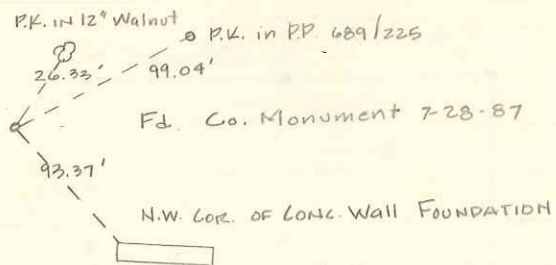 P.K. IN 12" Walnut
P.K. in P.P. 689/225
26.33'
99.04'
Fd. Co. Monument 7-28-87
93.37'
N.W. COR. OF CONC. Wall FOUNDATION